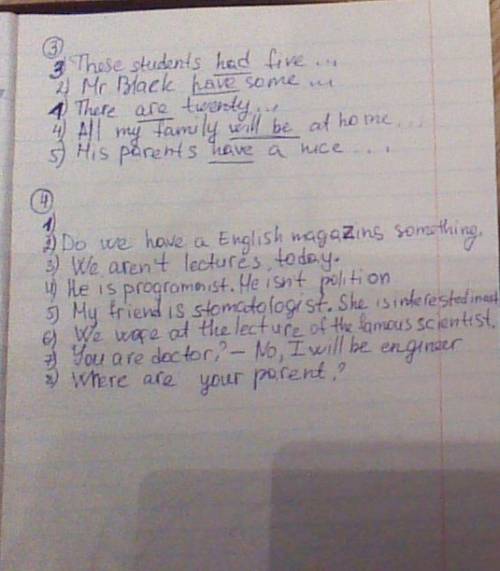 ③
3) These students had five...
2) Mr Black have some...
1) There are twenty...
4) All my family will be at home...
5) His parents have a nice....
④
1)
2) Do we have a English magazins something.
3) We aren't lectures, today.
4) He is programmist. He isn't polition
5) My friend is stomatologist. She is interested in
6) We were at the lecture of the famous scientist.
7) You are doctor? - No, I will be engineer
8) Where are your parent?